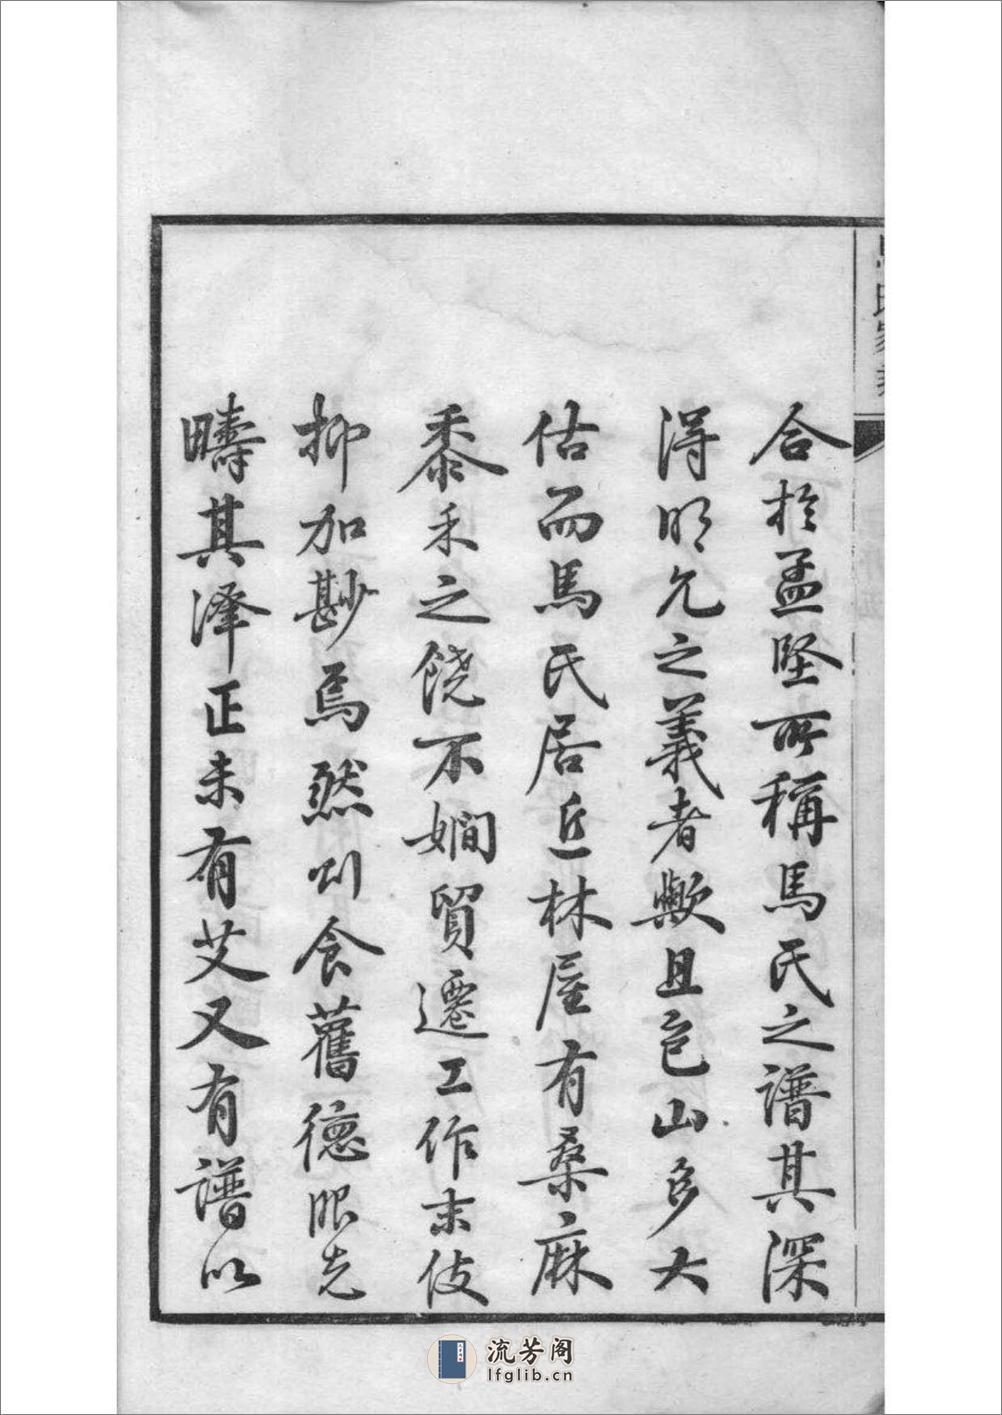 合於孟堅所稱馬氏之譜其深
得明允之義者歟且包山多大
估而馬氏居近林屋有桑麻
黍禾之饒不嫺貿遷工作末伎
抑加尠焉然則食舊德服先
疇其澤正未有艾又有譜以
流芳阁
lfglib.cn